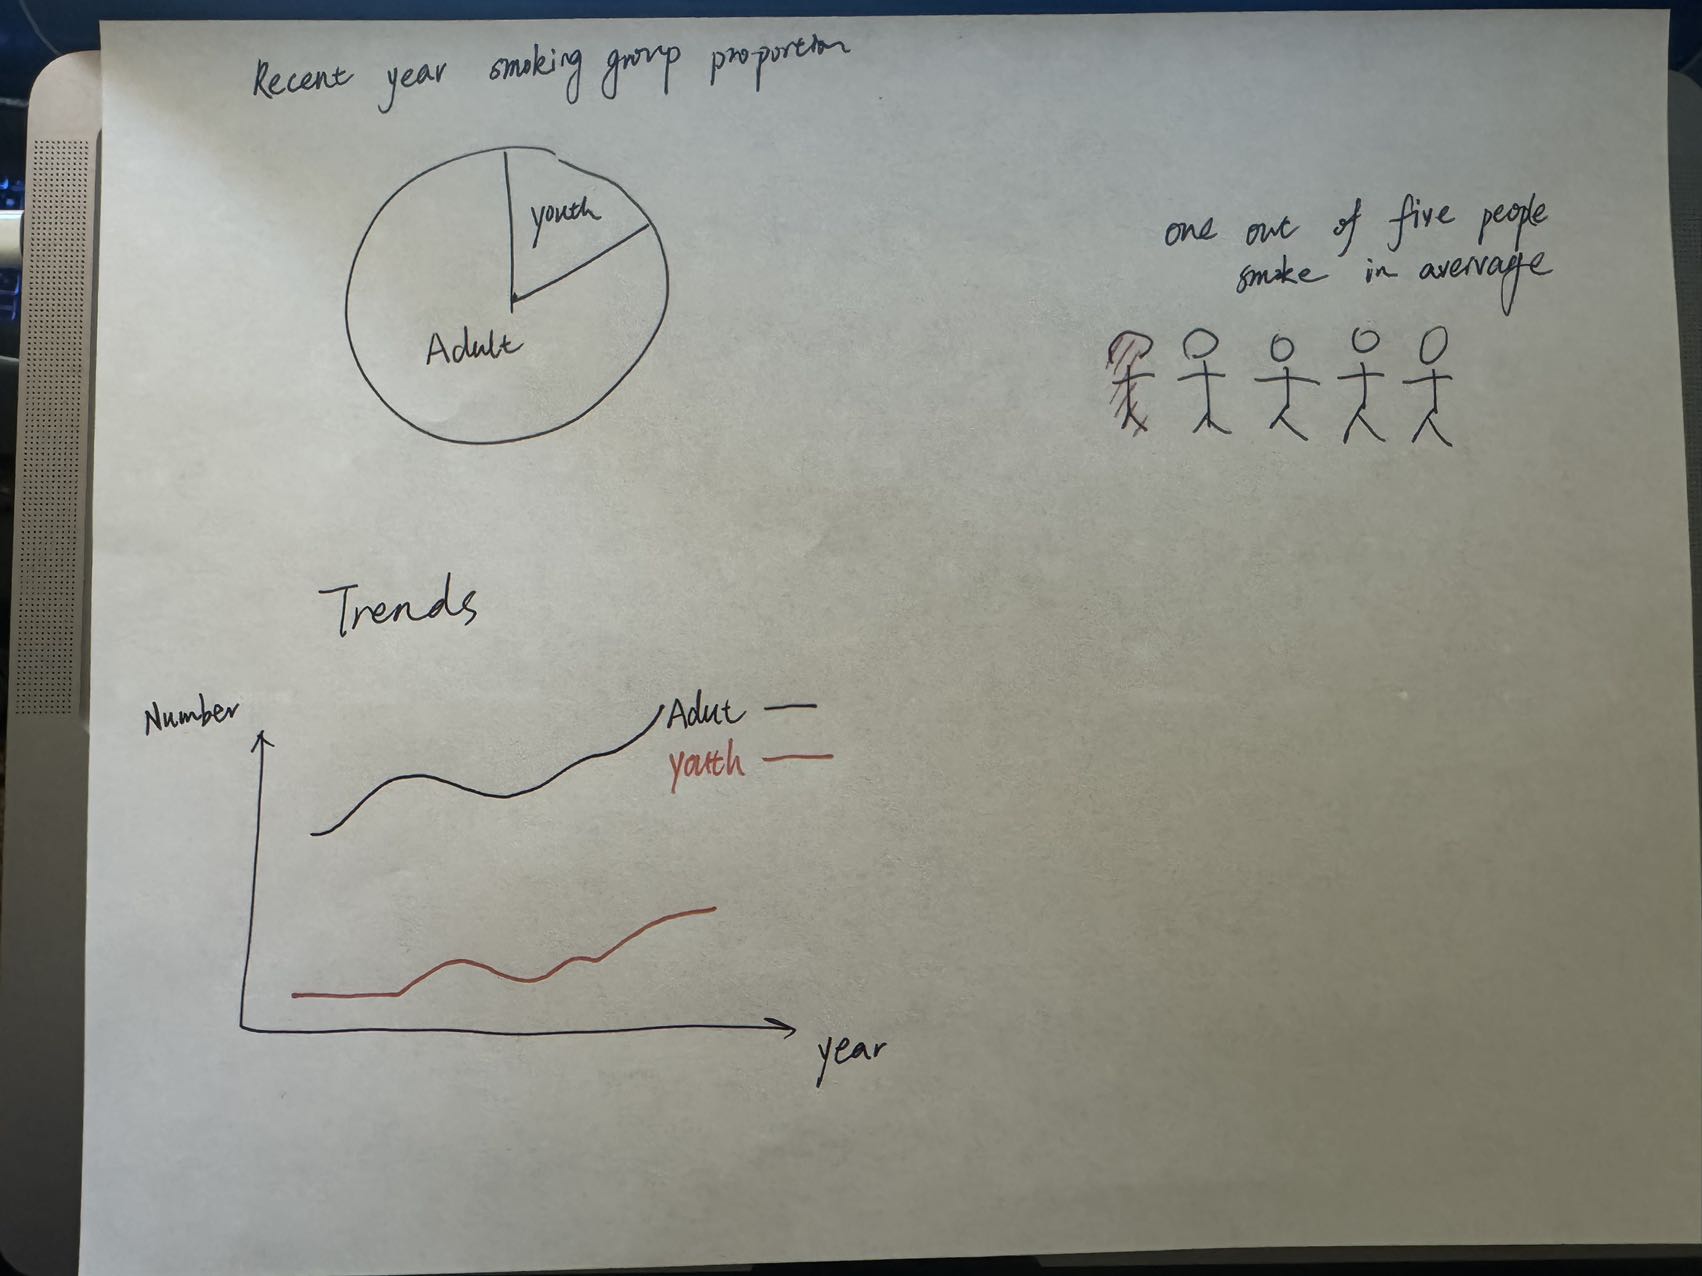 Recent year smoking group proportion
youth
Adult
one out of five people
smoke in avervage
Trends
Number
Adut
youth
year